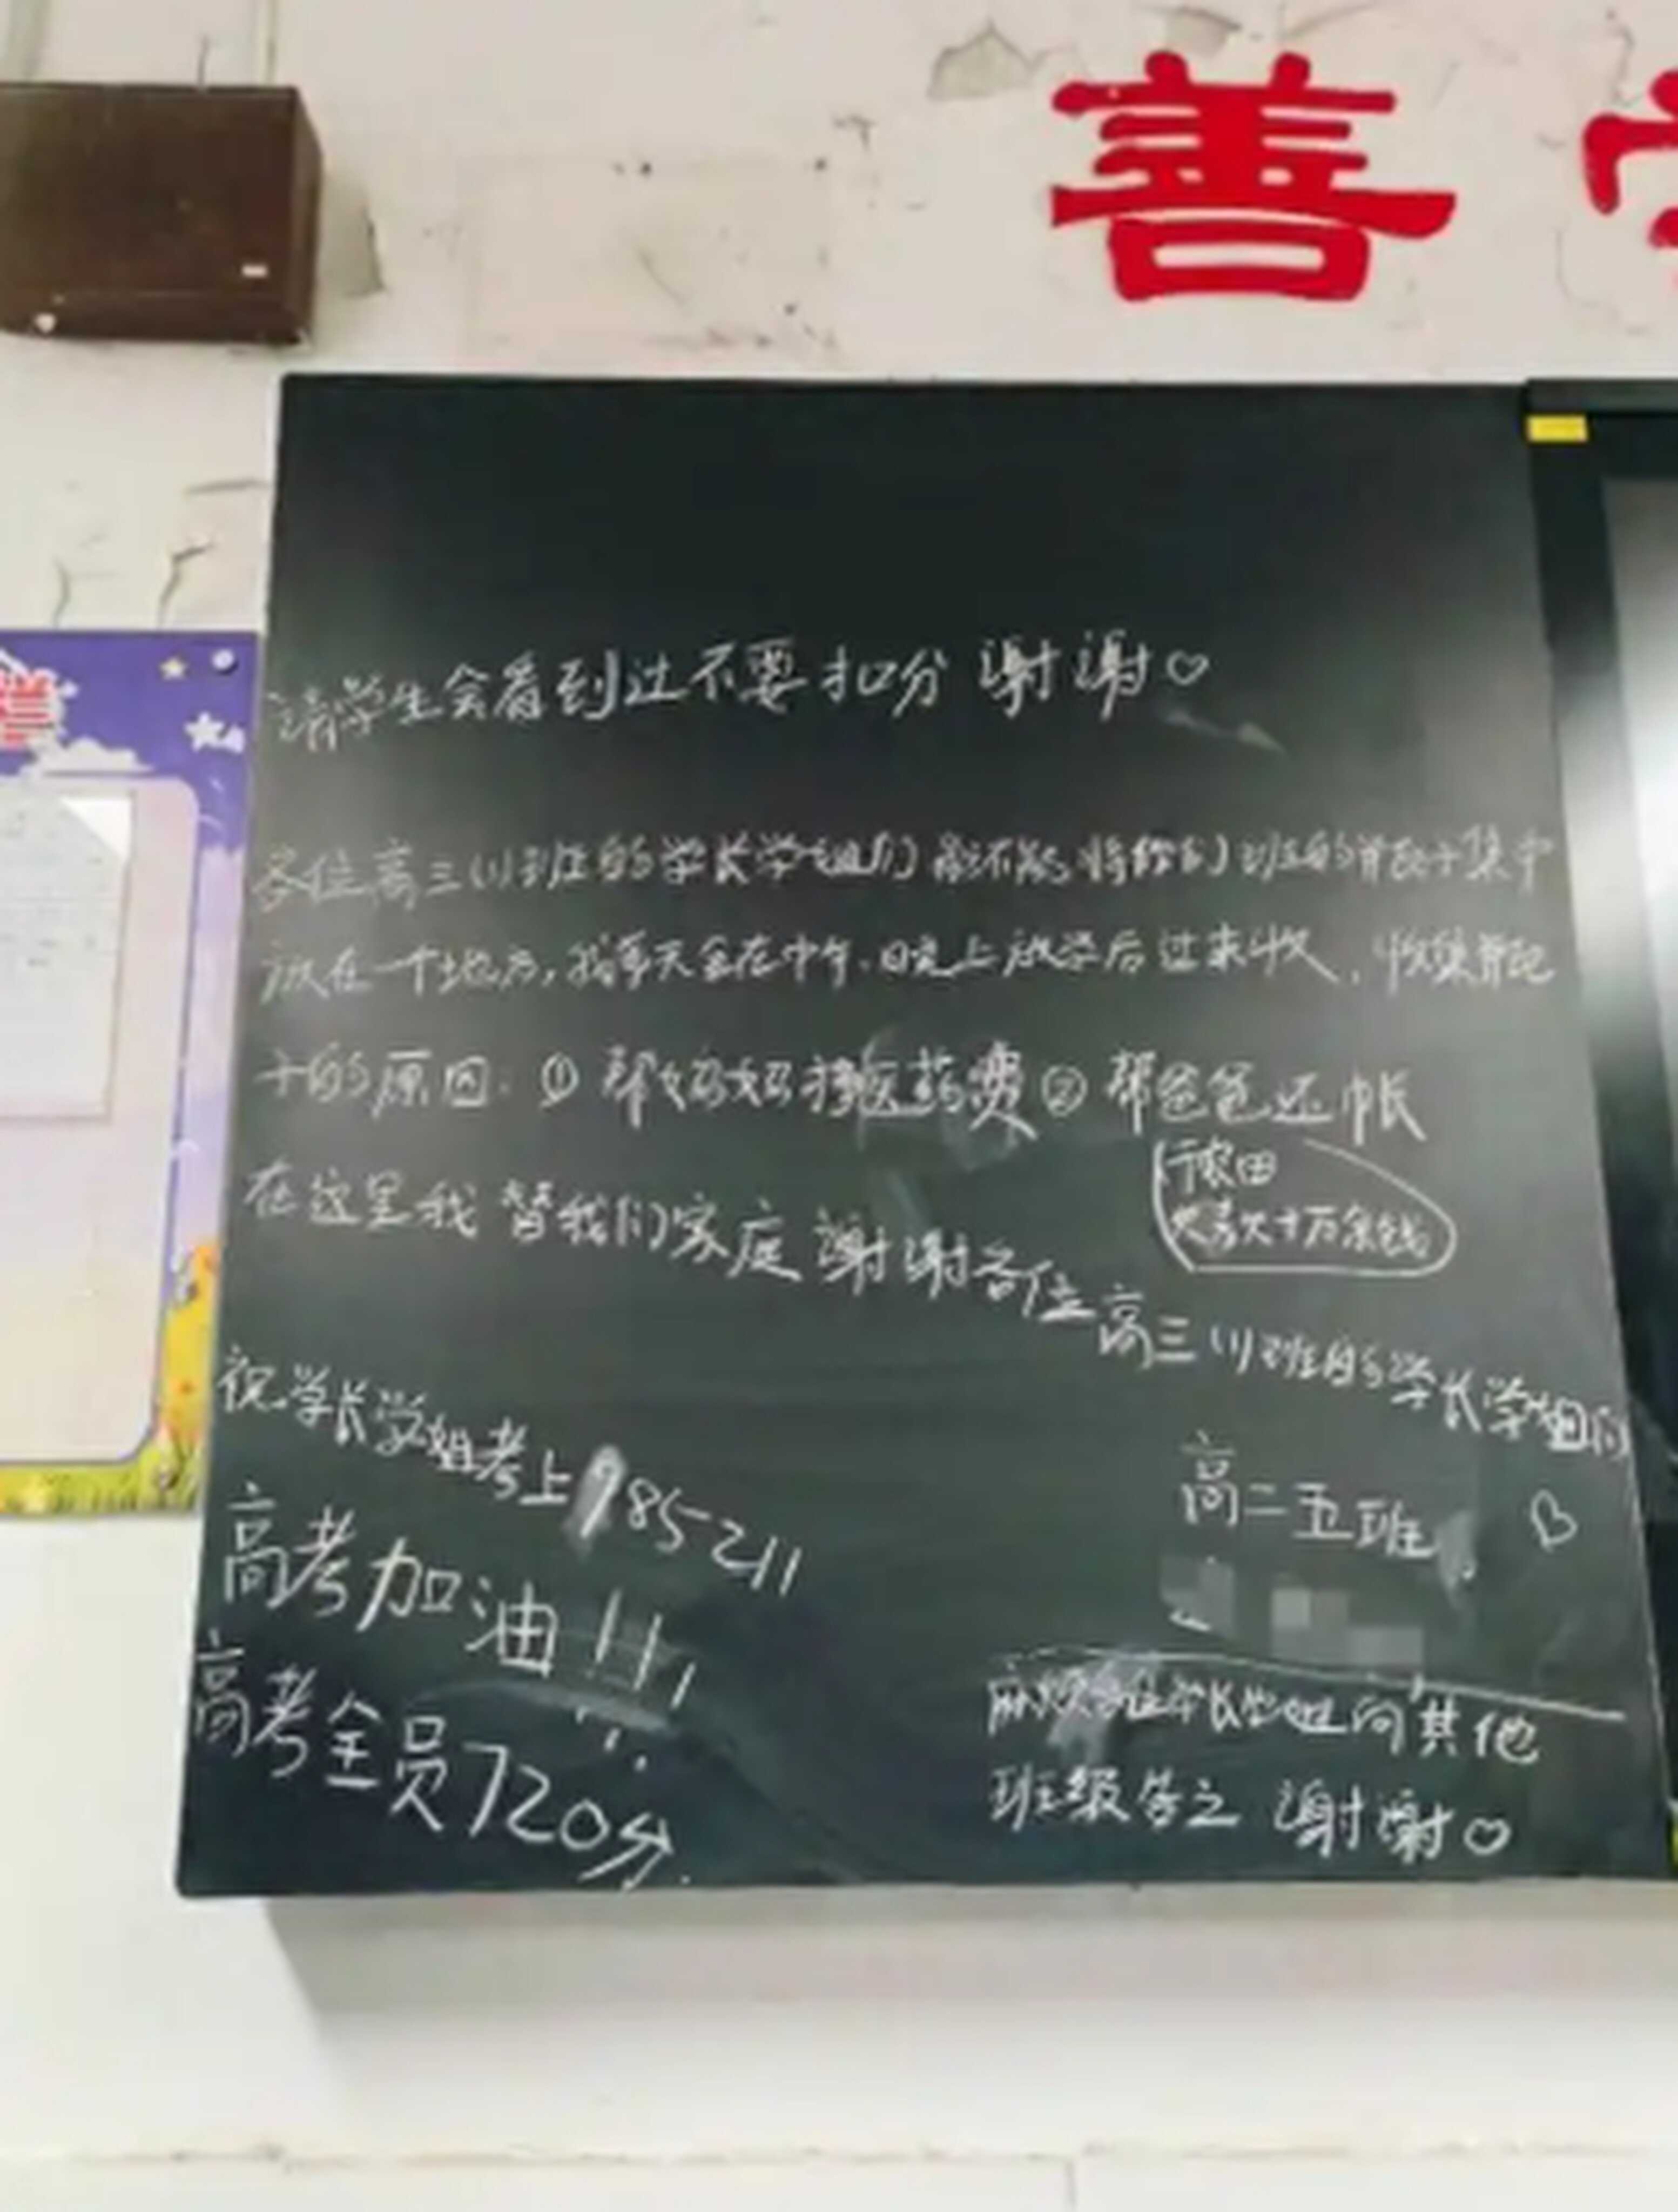 善
请学生会看到这不要扣分 谢谢♡
各位高三(1)班的学长学姐们 能不能将你们班的瓶子集中
放在一个地方,我每天会在中午、晚上放学后过来收,收集瓶
子的原因:① 帮妈妈挣医药费② 帮爸爸还帐
农田
欠款十万余钱
在这里我 替我们家庭 谢谢各位高三(1)班的学长学姐们
祝学长学姐考上985 211
高考加油!!!
高考全员720分.
高二五班
♡
麻烦各位学长学姐向其他
班级告之 谢谢♡